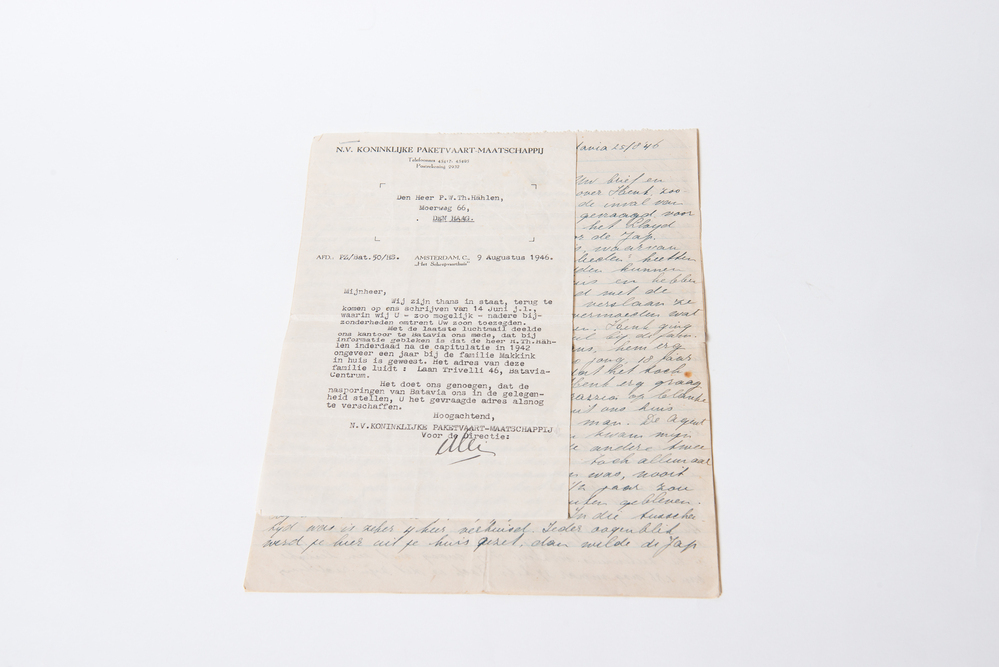 N.V. KONINKLIJKE PAKETVAART-MAATSCHAPPIJ
Telefoonnr.
Postrekening 2458
Den Heer P.W.Th.Hählen,
Moerweg 66,
DEN HAAG.
AFD.: PZ/Sat.50/HS. AMSTERDAM, C., 9 Augustus 1946.
„Het Scheepvaarthuis"
Mijnheer,
Wij zijn thans in staat, terug te
komen op ons schrijven van 14 Juni j.l.,
waarin wij U - zoo mogelijk - nadere bij-
zonderheden omtrent Uw zoon toezegden.
Met de laatste luchtmail deelde
ons kantoor te Batavia ons mede, dat bij
informatie gebleken is dat de heer H.Th.Häh-
len inderdaad na de capitulatie in 1942
ongeveer een jaar bij de familie Makkink
in huis is geweest. Het adres van deze
familie luidt : Laan Trivelli 46, Batavia-
Centrum.
Het doet ons genoegen, dat de
nasporingen van Batavia ons in de gelegen-
heid stellen, U het gevraagde adres alsnog
te verschaffen.
Hoogachtend,
N.V.KONINKLIJKE PAKETVAART-MAATSCHAPPIJ
Voor de Directie:
avia 25/8 46
brief en
over Henk, zoo-
de inval van
gevraagd voor
het Lloyd
de Jap.
waarvan
heetten
kunnen
en hebben
met de
verslaan ze
vermoeden wat
Henk ging
hem erg
jong, 18 jaar
het toch
Henk erg graag
op blanke
uit ons huis
man. De agent
kwam mijn
andere twee
toch allemaal
was, nooit
1/2 jaar zou
gebleven.
In die tusschen
tijd was ik zeker 4 keer verhuisd. Ieder oogenblik
werd je hier uit je huis gezet, dan wilde de Jap